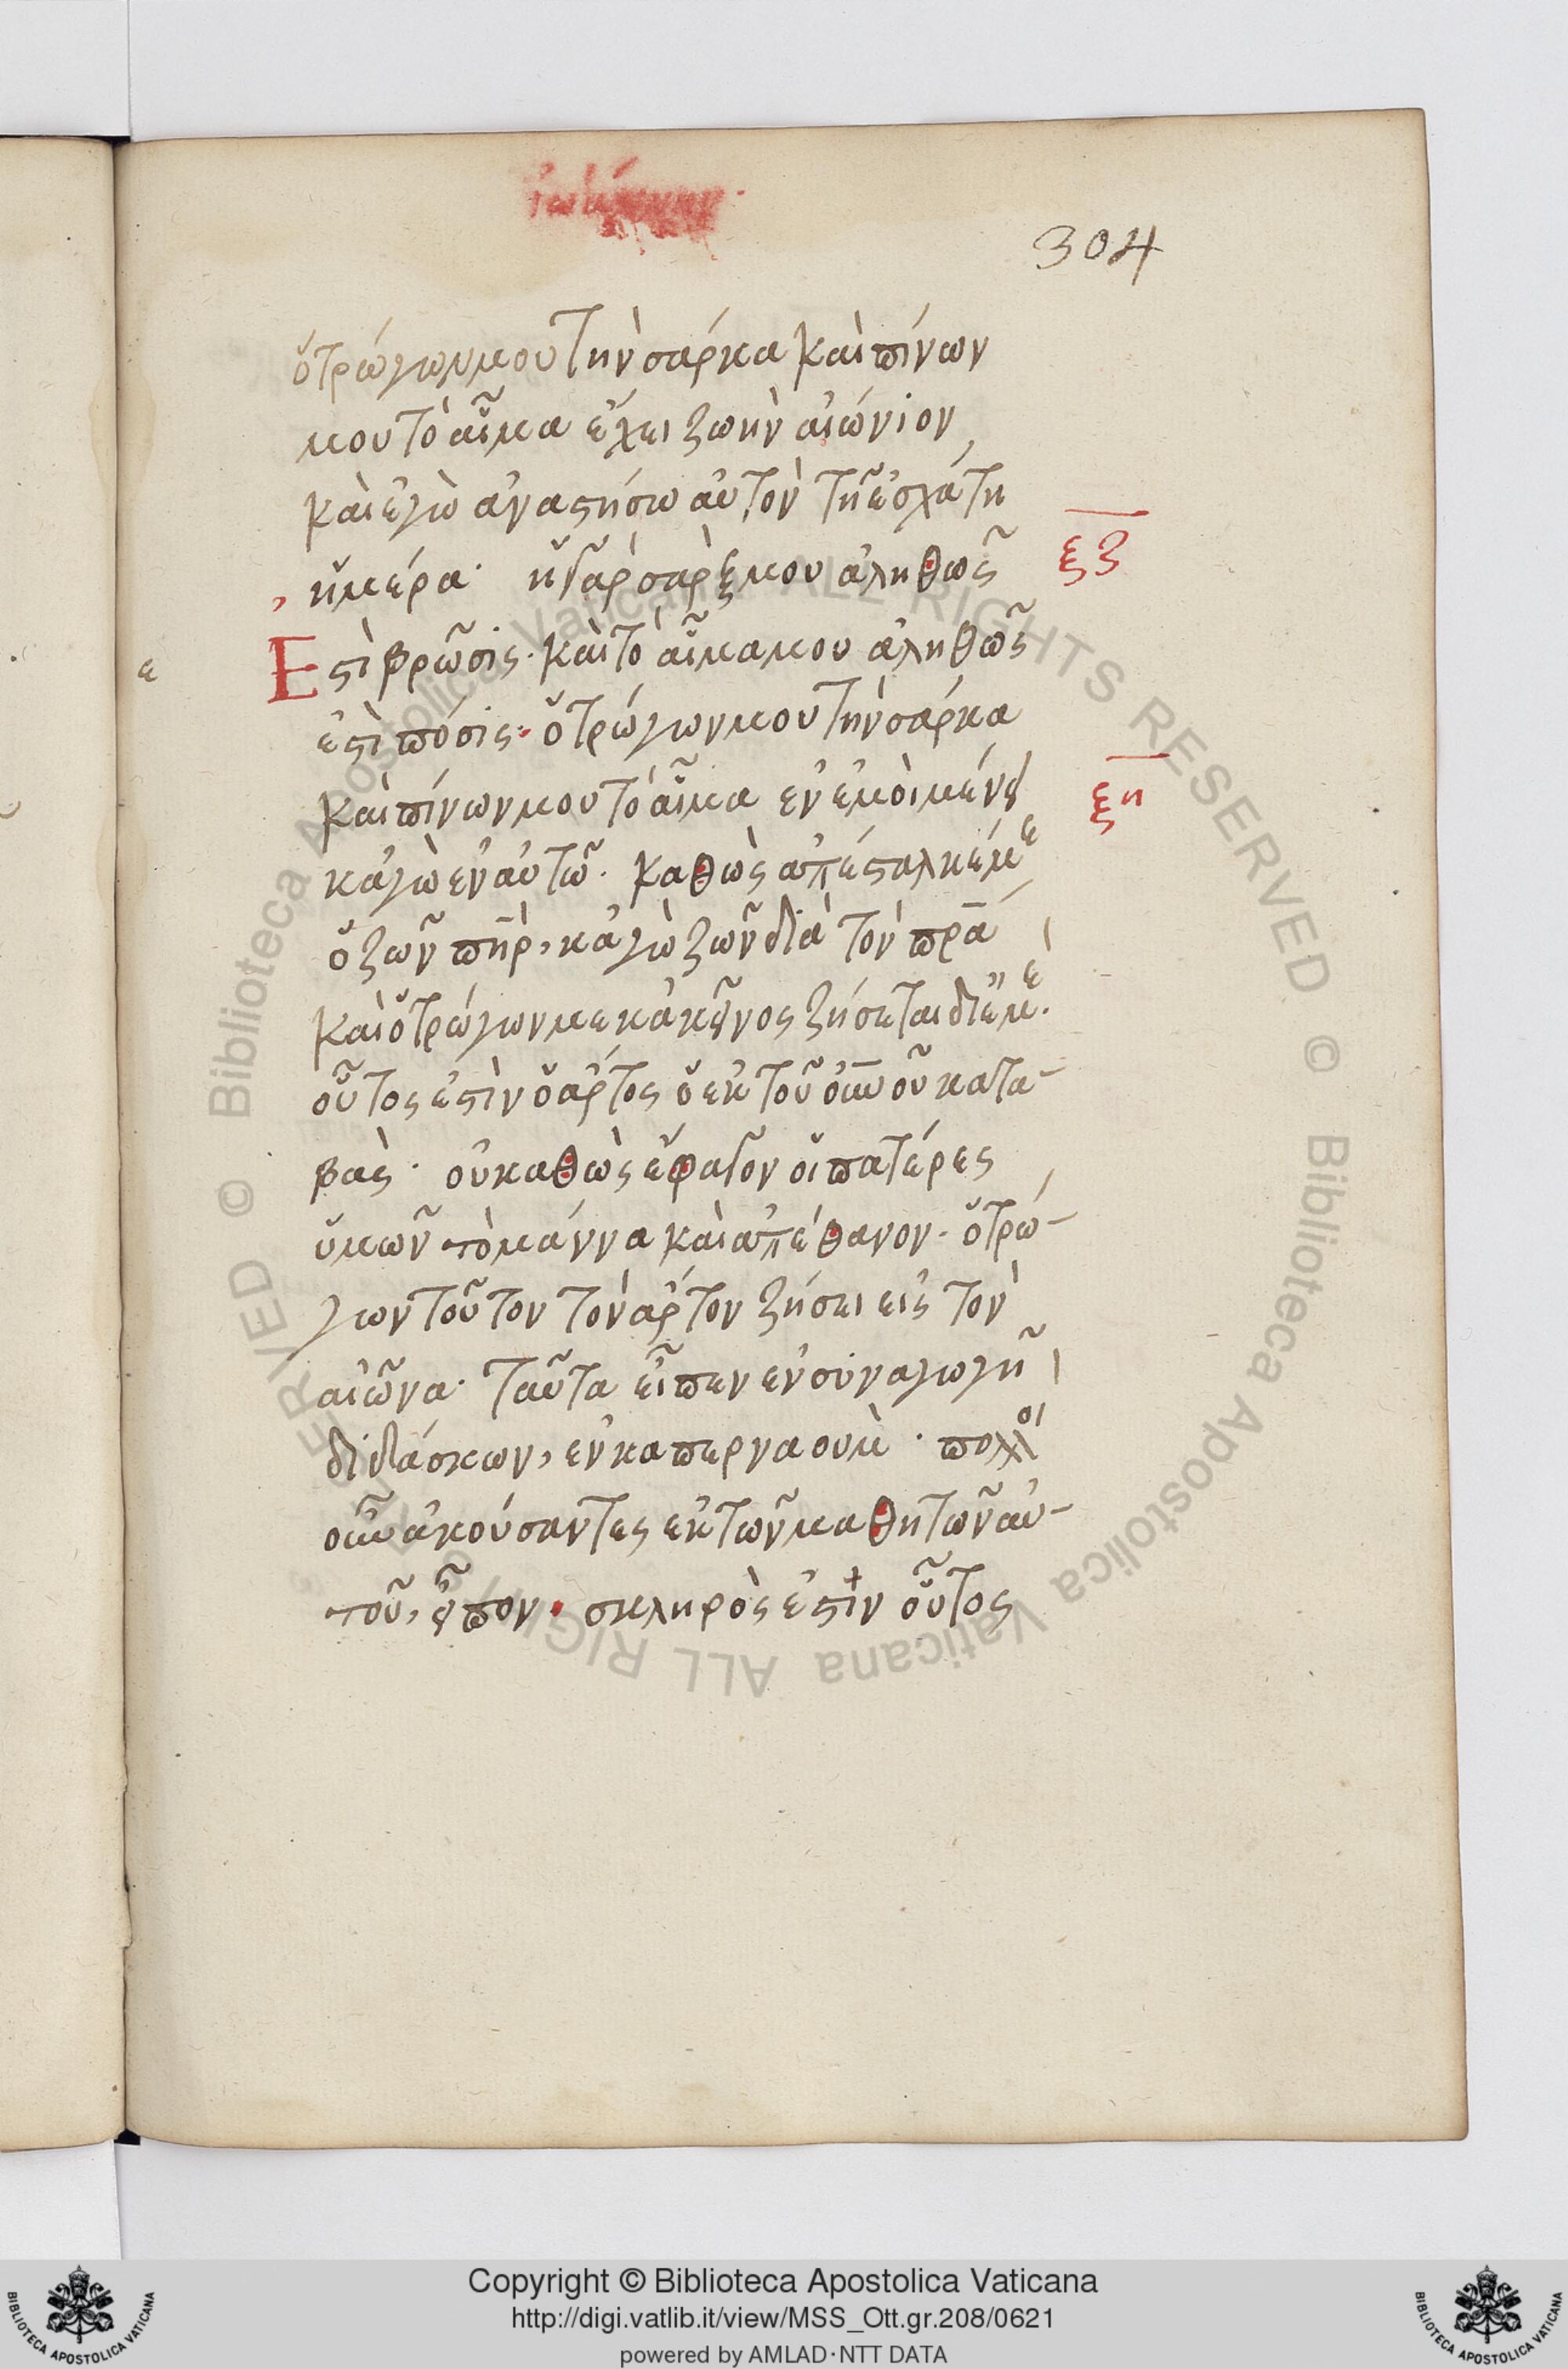 304
ὁ τρώγων μου τὴν σάρκα καὶ πίνων
μου τὸ αἷμα ἔχει ζωὴν αἰώνιον
καὶ ἐγὼ ἀναστήσω αὐτὸν τῇ ἐσχάτη
ἡμέρα· ἡ γὰρ σὰρξ μου ἀληθῶς
ξζ
Ἐστὶ βρῶσις· καὶ τὸ αἷμα μου ἀληθῶς
ε
ἐστὶ πόσις· ὁ τρώγων μου τὴν σάρκα
καὶ πίνων μου τὸ αἷμα ἐν ἐμοὶ μένει
ξη
κἀγὼ ἐν αὐτῶ· καθὼς ἀπέσταλκέ με
ὁ ζῶν πη̄ρ, κἀγὼ ζῶ διὰ τὸν πρ̄α
καὶ ὁ τρώγων με κἀκεῖνος ζήσεται δι' ἐμέ·
οὗτός ἐστὶν ὁ ἄρτος ὁ ἐκ τοῦ οὐ̄νοῦ κατα-
βὰς· οὐ καθὼς ἔφαγον οἱ πατέρες
ὑμῶν τὸ μάννα καὶ ἀπέθανον· ὁ τρώ-
γων τοῦτον τὸν ἄρτον ζήσει εἰς τὸν
αἰῶνα· Ταῦτα εἶπεν ἐν συναγωγῆ
διδάσκων, ἐν καπερναοὺμ· πολλοὶ
οὖν ἀκούσαντες ἐκ τῶν μαθητῶν αὐ-
τοῦ, εἶπον· σκληρὸς ἐστὶν οὗτος
Copyright © Biblioteca Apostolica Vaticana
http://digi.vatlib.it/view/MSS_Ott.gr.208/0621
powered by AMLAD·NTT DATA
BIBLIOTECA APOSTOLICA VATICANA
BIBLIOTECA APOSTOLICA VATICANA
© Biblioteca Apostolica Vaticana ALL RIGHTS RESERVED © Biblioteca Apostolica Vaticana ALL RIGHTS RESERVED